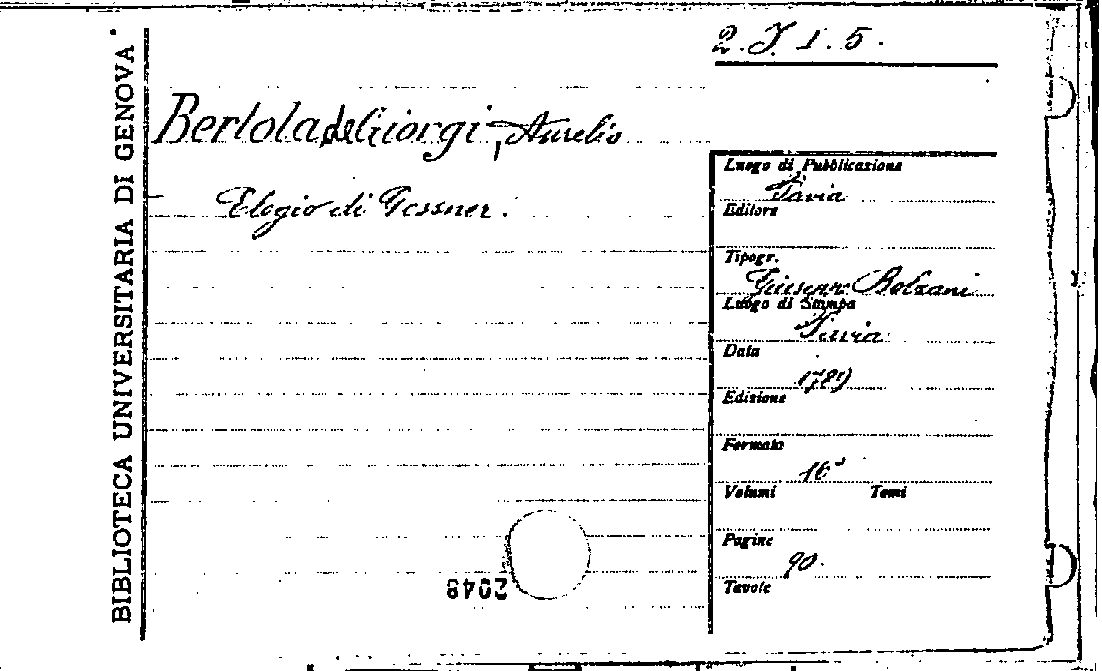 2. J. 1. 5.
BIBLIOTECA UNIVERSITARIA DI GENOVA
Bertola de Giorgi, Aurelio
Elogio di Gessner.
Luogo di Pubblicazione
Pavia
Editore
Tipogr.
Giusepp. Bolzani
Luogo di Stampa
Pavia
Data
1789
Edizione
Formato
16°
Volumi Tomi
Pagine
90.
Tavole
2048